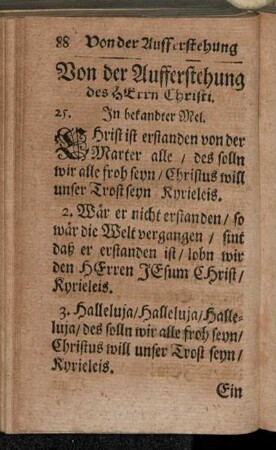 88 Von der Aufferstehung
Von der Aufferstehung
des HErrn Christi.
25. In bekandter Mel.
CHrist ist erstanden von der
Marter alle / des solln
wir alle froh seyn / Christus will
unser Trost seyn Kyrieleis.
2. Wär er nicht erstanden / so
wär die Welt vergangen / sint
daß er erstanden ist / lobn wir
den HErren JEsum CHrist /
Kyrieleis.
3. Halleluja / Halleluja / Halle-
luja / des solln wir alle froh seyn /
Christus will unser Trost seyn /
Kyrieleis.
Ein